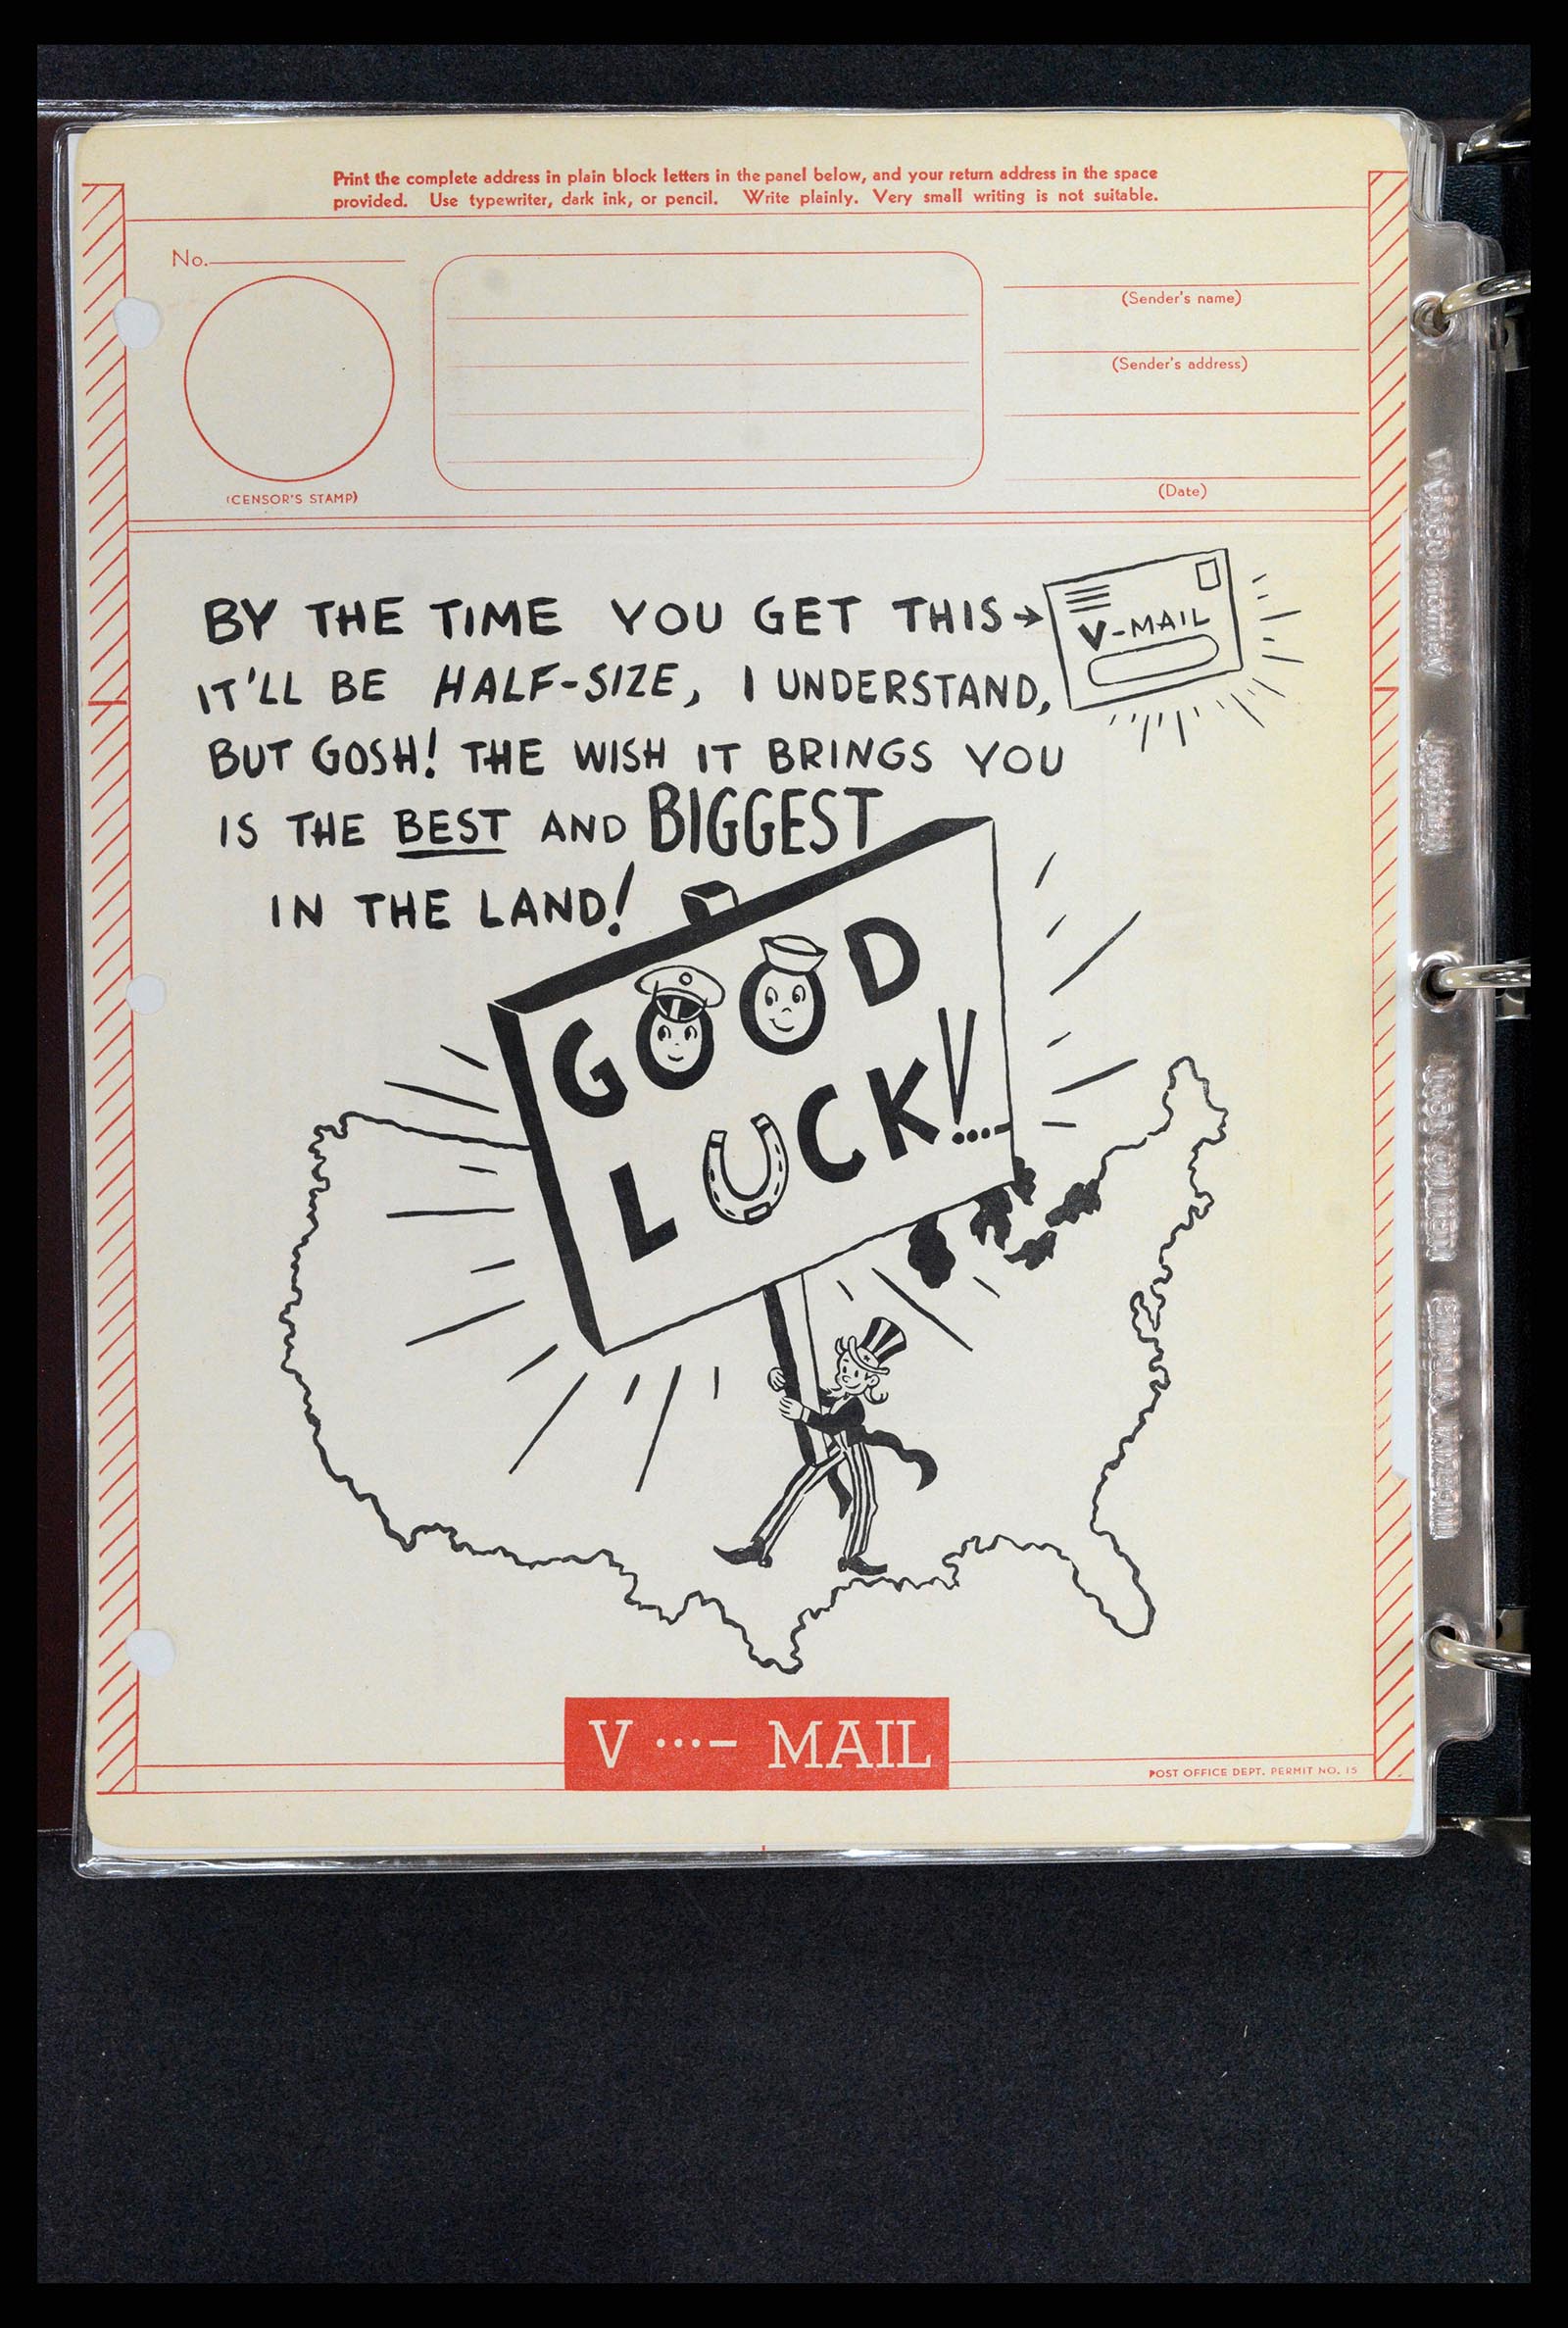 Print the complete address in plain block letters in the panel below, and your return address in the space
provided. Use typewriter, dark ink, or pencil. Write plainly. Very small writing is not suitable.
No.
(CENSOR'S STAMP)
(Sender's name)
(Sender's address)
(Date)
BY THE TIME YOU GET THIS→
V-MAIL
IT'LL BE HALF-SIZE, I UNDERSTAND,
BUT GOSH! THE WISH IT BRINGS YOU
IS THE BEST AND BIGGEST
IN THE LAND!
GOOD
LUCK!
V ...– MAIL
POST OFFICE DEPT. PERMIT NO. 15